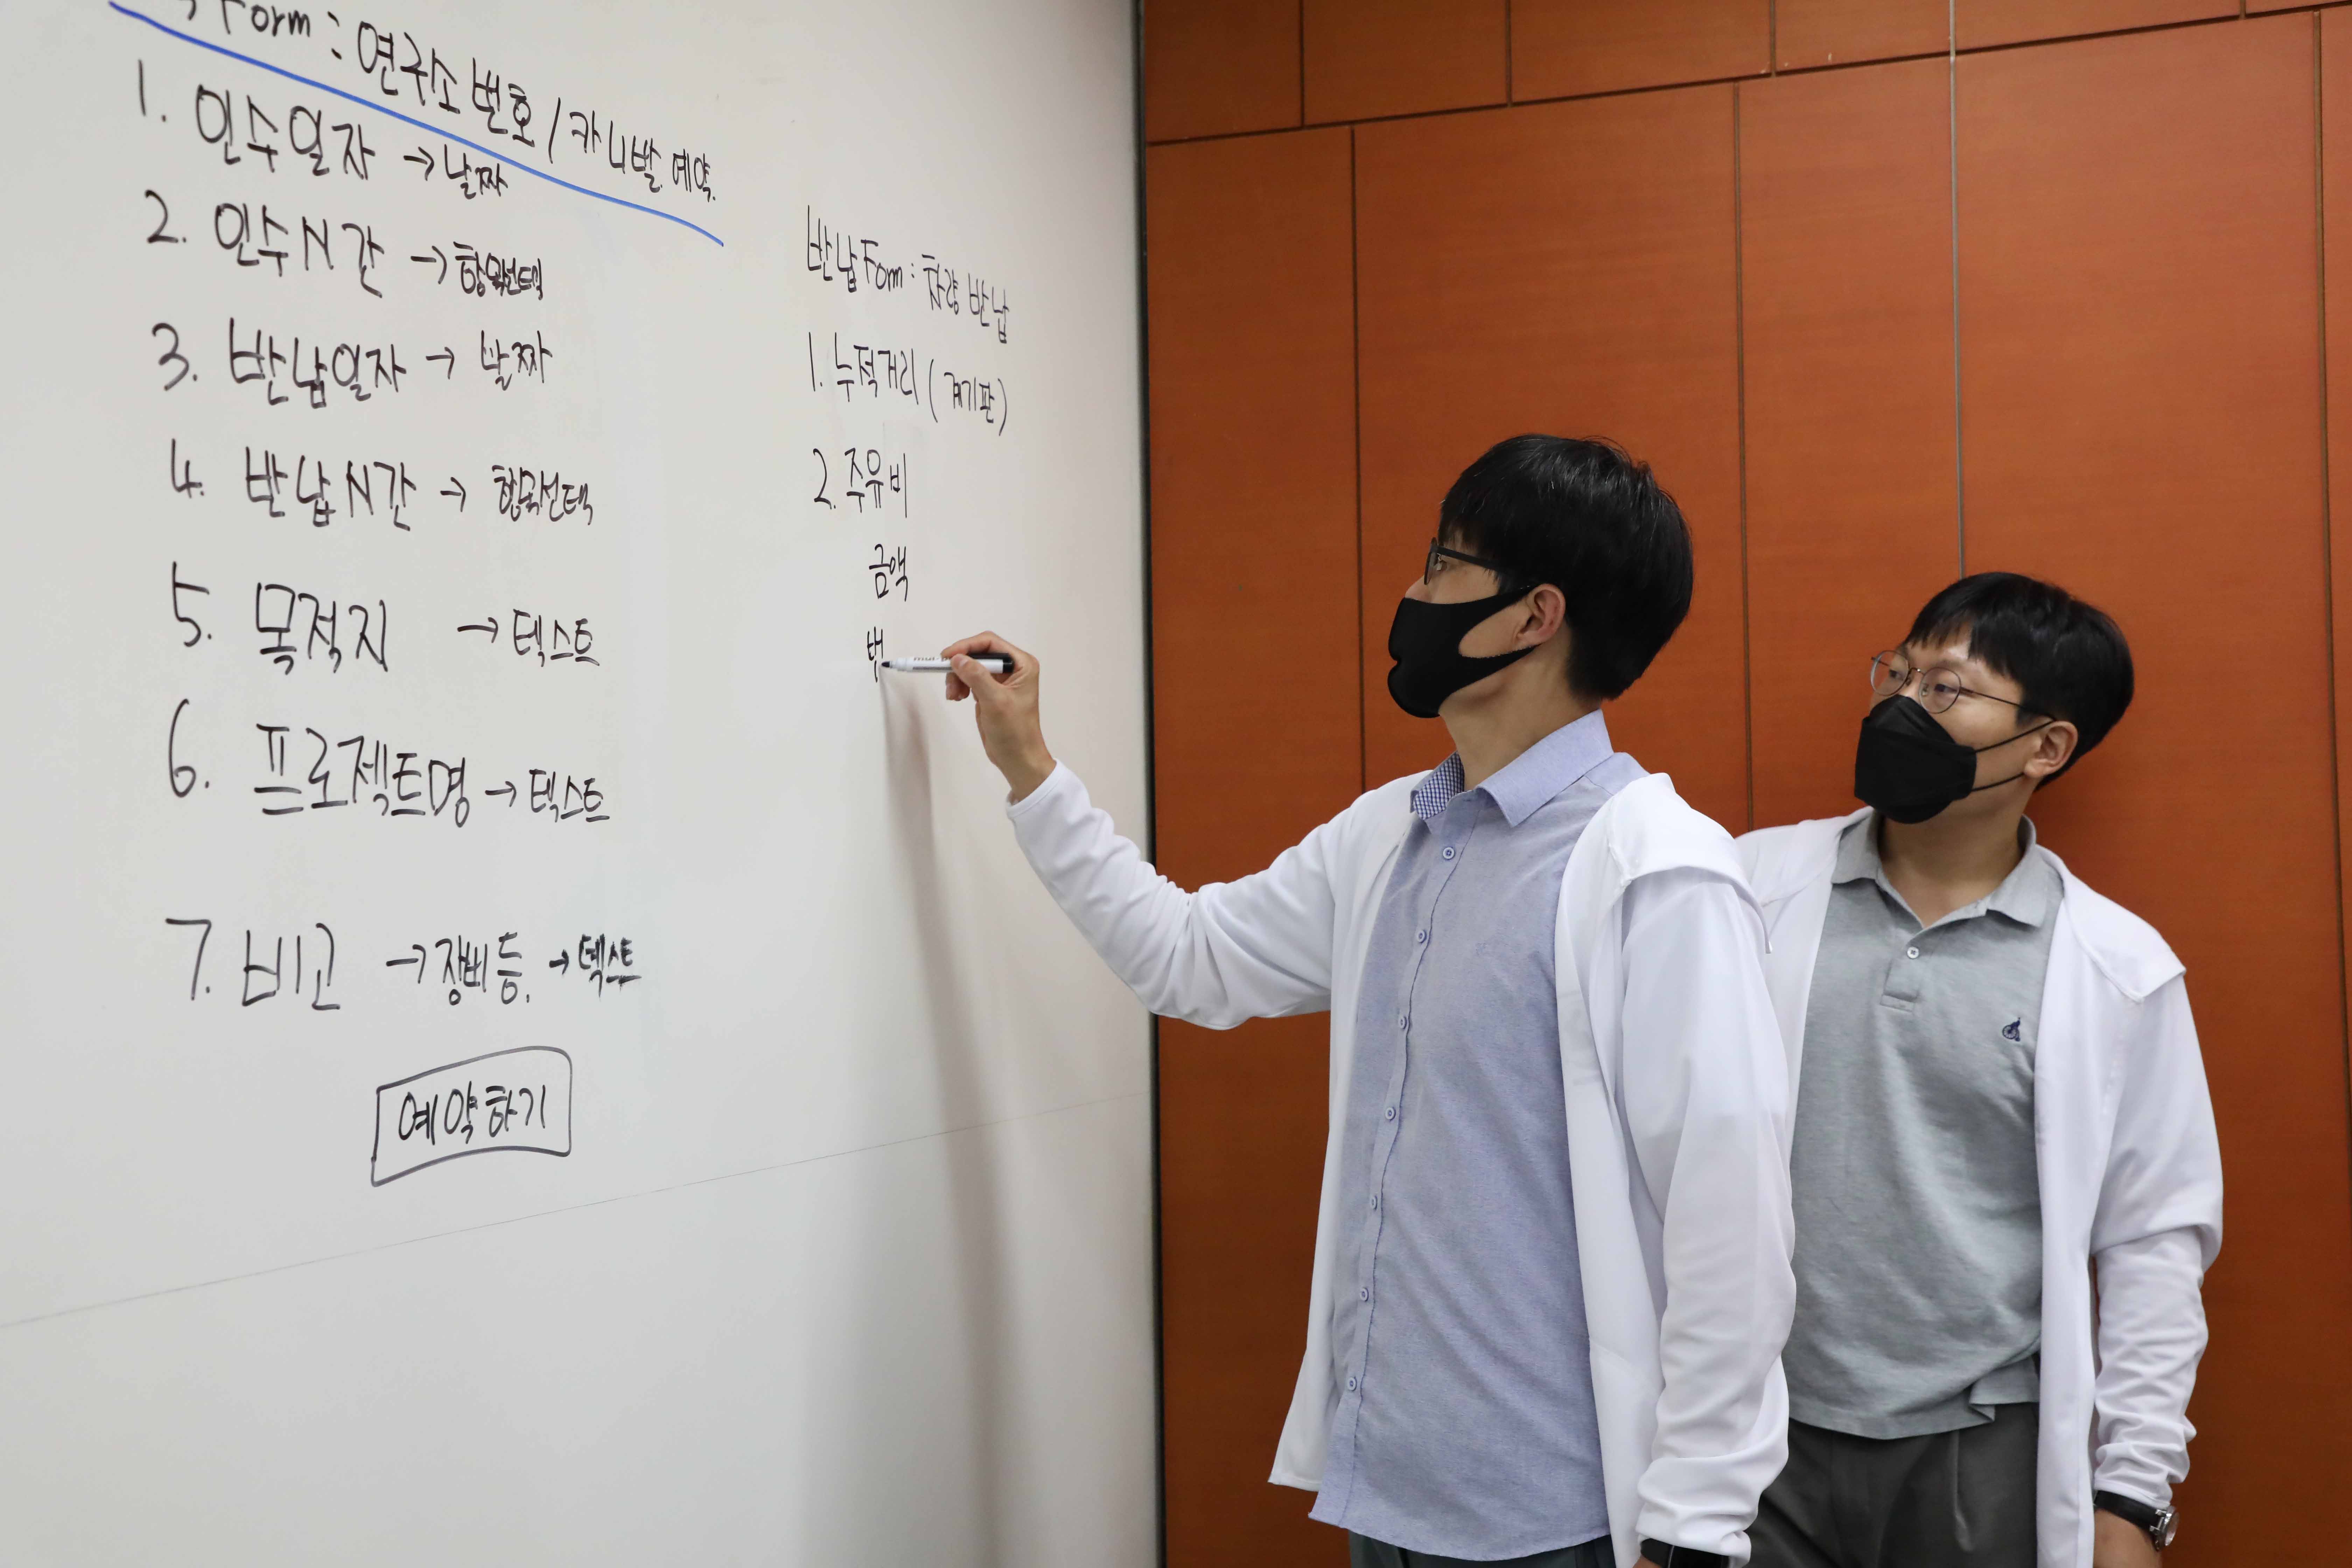 Form : 연구소 번호 / 카니발 예약.
1. 인수일자 → 날짜
2. 인수시간 → 항목선택
3. 반납일자 → 날짜
4. 반납시간 → 항목선택
5. 목적지 → 텍스트
6. 프로젝트명 → 텍스트
7. 비고 → 장비 등. → 텍스트
예약하기
반납 Form : 차량 반납
1. 누적거리 (계기판)
2. 주유비
금액